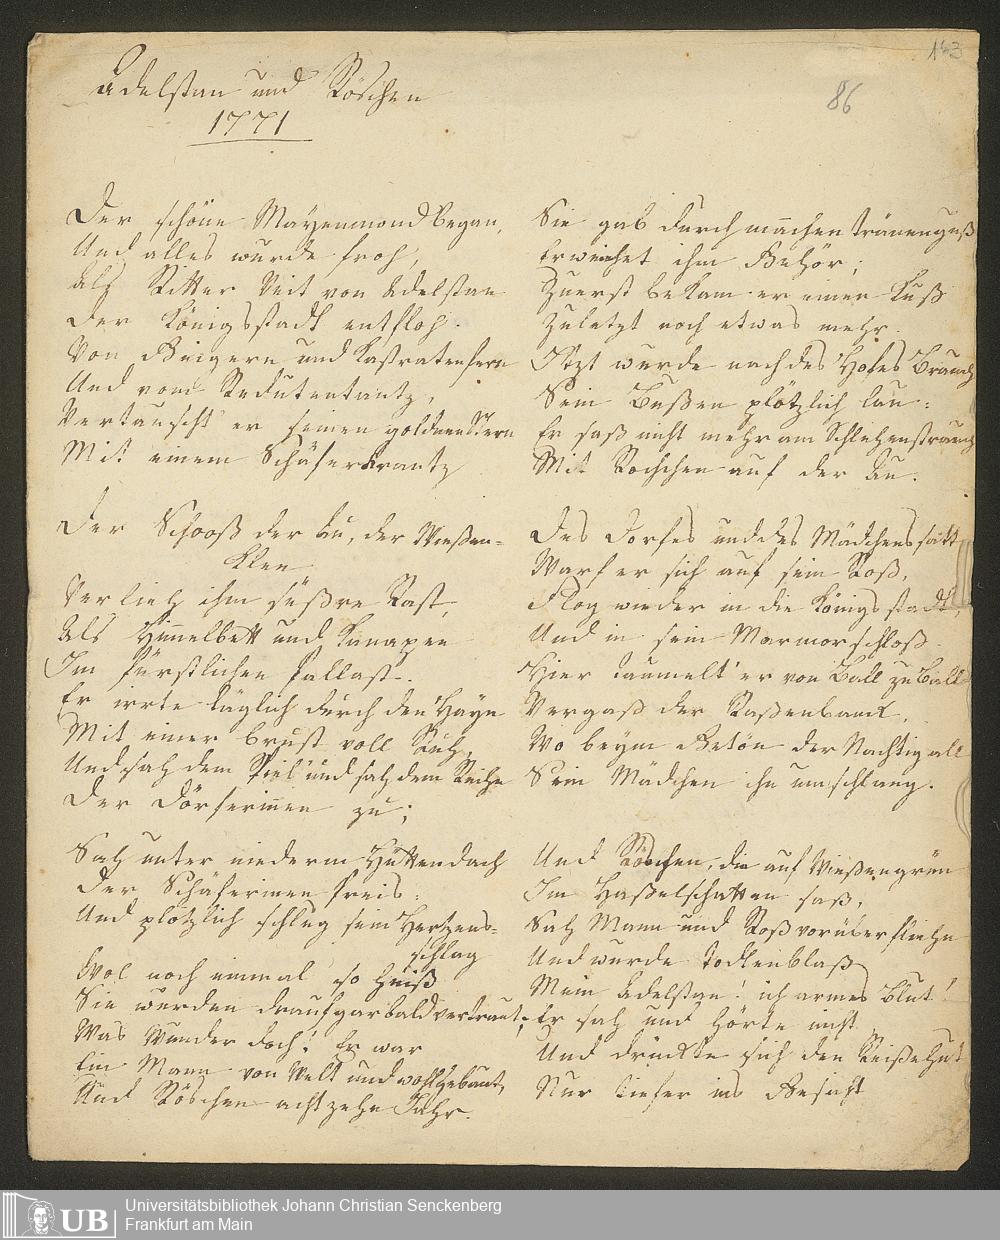 143
86
Adelstan und Röschen
1771
Der schöne Mayenmond began,
Und alles wurde froh,
Als Ritter Veit von Adelstan
Der Königsstadt entfloh.
Von Geigern und Kastraten fern
Und vom Redutentantz,
Vertauscht er seinen goldnen Stern
Mit einem Schäferkrantz
Der Schooß der Au, der Wießen=
Klee
Verlieh ihm süßre Rast,
Als Himmelbett und Kanapee
Im fürstlichen Pallast.
Er irrte täglich durch den Hayn
Mit einer Brust voll Ruh,
Und sah dem Spiel und sah dem Reihn
Der Dörferinnen zu;
Sah unter niederm Hüttendach
Der Schäferinnen Preis:
Und plötzlich schlug sein Hertzens=
schlag
Wol noch einmal so heiß
Sie wurden drauf gar bald vertraut;
Was Wunder doch! Er war
Ein Mann von Welt und wohlgebaut,
Und Röschen achtzehn Jahr.
Sie gab durch manchen Tränenguß
Erweichet ihm Gehör;
Zuerst bekam er einen Kuß
Zuletzt noch etwas mehr.
Itzt wurde nach des Hofes Brauch
Sein Bußen plötzlich lau:
Er saß nicht mehr am Schlehenstrauch
Mit Röschen auf der Au.
Des Dorfes und des Mädchens satt
Warf er sich auf sein Roß,
Flog wieder in die Königsstadt,
Und in sein Marmorschloß.
Hier taumelt' er von Ball zu Ball
Vergaß der Raßenbank,
Wo beym Getön der Nachtigall
Sein Mädchen ihn umschlang.
Und Röschen, die auf Wießengrün
Im Haßelschatten saß,
Sah Mann und Roß vorüber fliehn
Und wurde todtenblaß
Mein Adelstan! ich armes Blut!
Er sah und hörte nicht
Und drückte sich den Reißehut
Nur tiefer ins Gesicht
UB
Universitätsbibliothek Johann Christian Senckenberg
Frankfurt am Main